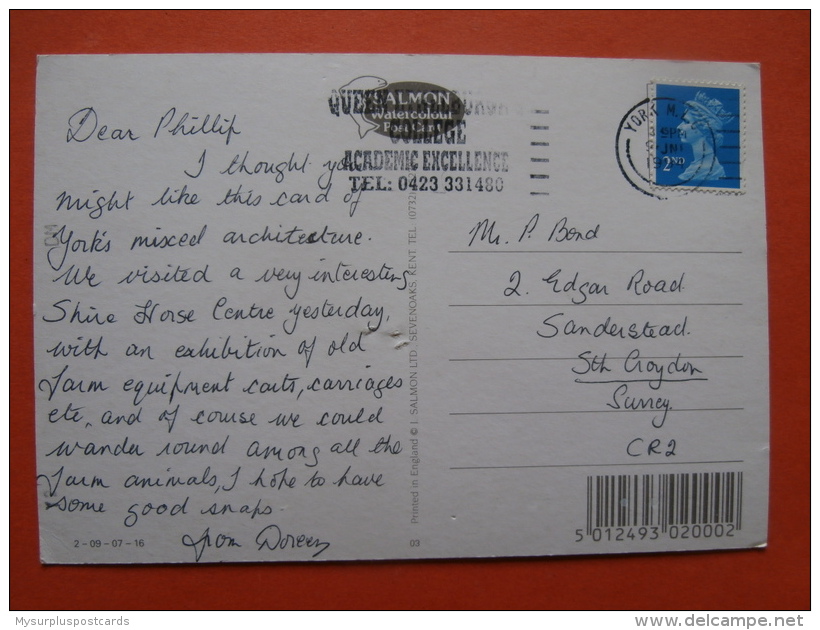 Dear Phillip
I thought you
might like this card of
York's mixed architecture.
We visited a very interesting
Shire Horse Centre yesterday,
with an exhibition of old
farm equipment carts, carriages
etc, and of course we could
wander round among all the
farm animals, I hope to have
some good snaps
from Doreen
2-09-07-16
SALMON
Watercolour
QUEEN
COLLEGE
ACADEMIC EXCELLENCE
TEL: 0423 331480
Printed in England © J. SALMON LTD., SEVENOAKS, KENT. TEL. (0732)
03
YORK
2ND
Mr. P. Bond
2. Edgar Road
Sanderstead.
Sth Croydon
Surrey.
CR2
5 012493 020002
Mysurpluspostcards
www.delcampe.net